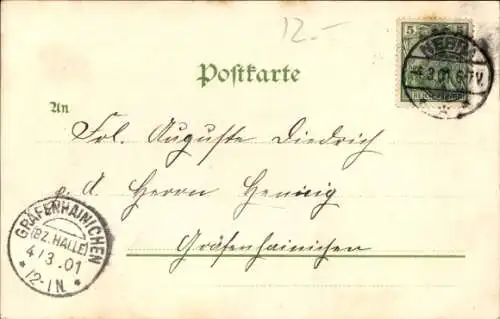 12.-
5 5
NEBRA
4.3.01.6-7V.
Postkarte
An
Frl. Auguste Diedrich
d. Herrn Hennig
Gräfenhainichen
GRÄFENHAINICHEN
(BZ. HALLE)
4/3.01
*12-1N.*